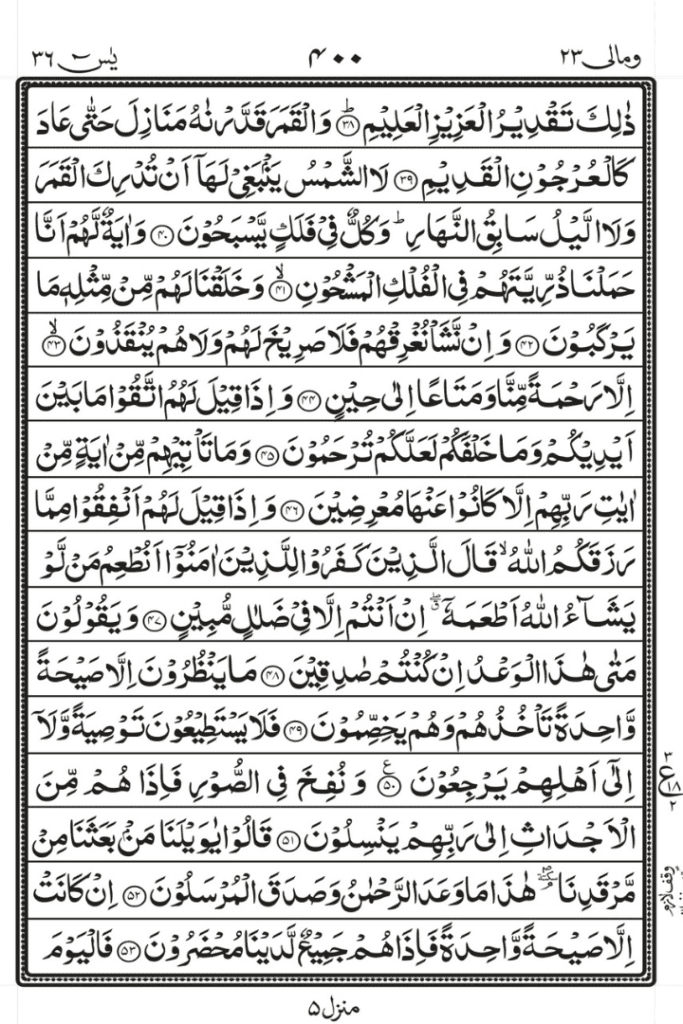 ومالى ٢٣
٤٠٠
يٰسٓ ٣٦
ذٰلِكَ تَقْدِيْرُ الْعَزِيْزِ الْعَلِيْمِ ﴿ؕ۳۸﴾ وَالْقَمَرَ قَدَّرْنٰهُ مَنَازِلَ حَتّٰى عَادَ
كَالْعُرْجُوْنِ الْقَدِيْمِ ﴿۳۹﴾ لَا الشَّمْسُ يَنْۢبَغِىْ لَهَاۤ اَنْ تُدْرِكَ الْقَمَرَ
وَلَا الَّيْلُ سَابِقُ النَّهَارِ ؕ وَكُلٌّ فِىْ فَلَكٍ يَّسْبَحُوْنَ ﴿۴۰﴾ وَاٰيَةٌ لَّهُمْ اَنَّا
حَمَلْنَا ذُرِّيَّتَهُمْ فِى الْفُلْكِ الْمَشْحُوْنِ ﴿ۙ۴۱﴾ وَخَلَقْنَا لَهُمْ مِّنْ مِّثْلِهٖ مَا
يَرْكَبُوْنَ ﴿۴۲﴾ وَاِنْ نَّشَاْ نُغْرِقْهُمْ فَلَا صَرِيْخَ لَهُمْ وَلَا هُمْ يُنْقَذُوْنَ ﴿ۙ۴۳﴾
اِلَّا رَحْمَةً مِّنَّا وَمَتَاعًا اِلٰى حِيْنٍ ﴿۴۴﴾ وَاِذَا قِيْلَ لَهُمُ اتَّقُوْا مَا بَيْنَ
اَيْدِيْكُمْ وَمَا خَلْفَكُمْ لَعَلَّكُمْ تُرْحَمُوْنَ ﴿۴۵﴾ وَمَا تَاْتِيْهِمْ مِّنْ اٰيَةٍ مِّنْ
اٰيٰتِ رَبِّهِمْ اِلَّا كَانُوْا عَنْهَا مُعْرِضِيْنَ ﴿۴۶﴾ وَاِذَا قِيْلَ لَهُمْ اَنْفِقُوْا مِمَّا
رَزَقَكُمُ اللّٰهُ ۙ قَالَ الَّذِيْنَ كَفَرُوْا لِلَّذِيْنَ اٰمَنُوْۤا اَنُطْعِمُ مَنْ لَّوْ
يَشَآءُ اللّٰهُ اَطْعَمَهٗۤ ۖ اِنْ اَنْتُمْ اِلَّا فِىْ ضَلٰلٍ مُّبِيْنٍ ﴿۴۷﴾ وَيَقُوْلُوْنَ
مَتٰى هٰذَا الْوَعْدُ اِنْ كُنْتُمْ صٰدِقِيْنَ ﴿۴۸﴾ مَا يَنْظُرُوْنَ اِلَّا صَيْحَةً
وَّاحِدَةً تَاْخُذُهُمْ وَهُمْ يَخِصِّمُوْنَ ﴿۴۹﴾ فَلَا يَسْتَطِيْعُوْنَ تَوْصِيَةً وَّلَاۤ
اِلٰٓى اَهْلِهِمْ يَرْجِعُوْنَ ﴿۵۰﴾ وَنُفِخَ فِى الصُّوْرِ فَاِذَا هُمْ مِّنَ
الْاَجْدَاثِ اِلٰى رَبِّهِمْ يَنْسِلُوْنَ ﴿۵۱﴾ قَالُوْا يٰوَيْلَنَا مَنْۢ بَعَثَنَا مِنْ
مَّرْقَدِنَا ۘ هٰذَا مَا وَعَدَ الرَّحْمٰنُ وَصَدَقَ الْمُرْسَلُوْنَ ﴿۵۲﴾ اِنْ كَانَتْ
اِلَّا صَيْحَةً وَّاحِدَةً فَاِذَا هُمْ جَمِيْعٌ لَّدَيْنَا مُحْضَرُوْنَ ﴿۵۳﴾ فَالْيَوْمَ
٣
ع
١٨
٢
وقف لازم
منزل ۵